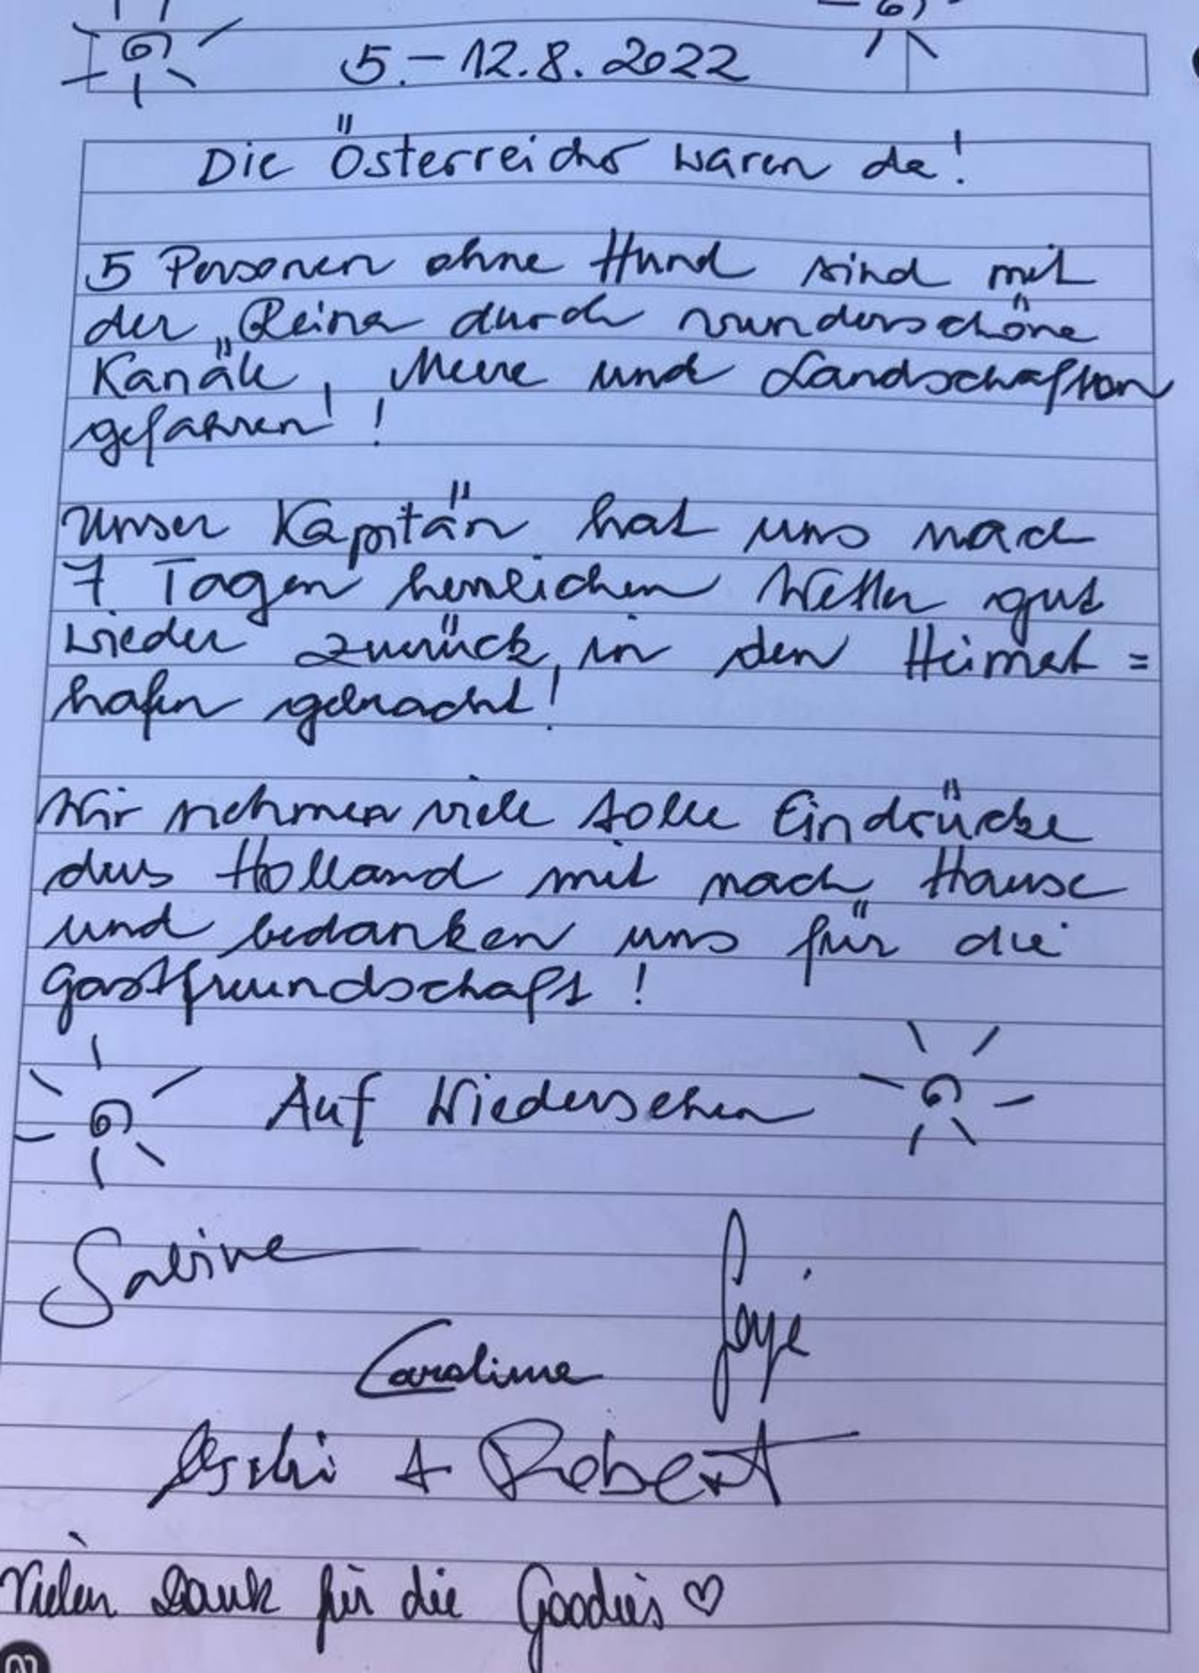 5.-12.8.2022
Die Österreicher waren da!
5 Personen ohne Hund sind mit
der „Reina durch wunderschöne
Kanäle, Meere und Landschaften
gefahren!!
Unser Kapitän hat uns nach
7 Tagen herrlichen Wetter gut
wieder zurück in den Heimat=
hafen gebracht!
Wir nehmen viele tolle Eindrücke
aus Holland mit nach Hause
und bedanken uns für die
Gastfreundschaft!
Auf Wiedersehen
Sabine
Caroline
+ Robert
Vielen Dank für die Goodies ♡